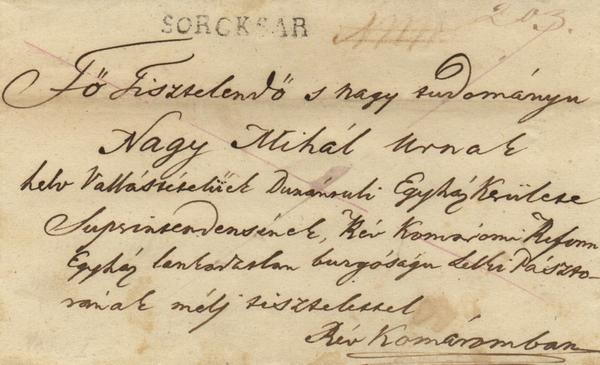 SOROKSAR
203.
Fő Tisztelendő s nagy tudományu
Nagy Mihál Urnak
helv Vallástételüek Dunántuli Egyház Kerülete
Suprintendensének, Rév Komáromi Reform
Egyház lankadatlan buzgóságu Lelki Pászto-
rának mély tisztelettel
Rév Komáromban